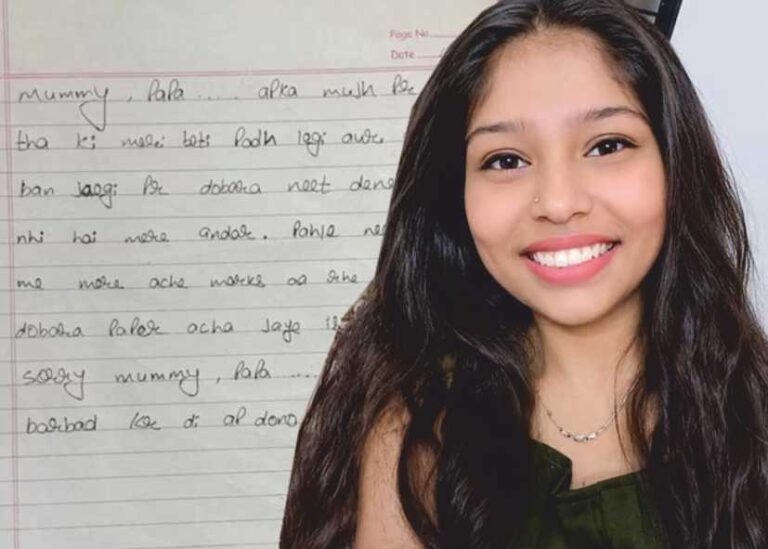 Page No.
Date
Mummy, Papa ..... apka mujh Per
tha ki meri beti Padh legi aur
ban Jaegi Per dobara neet dene
nhi hai mere andar. Pahle ne
me mere ache marks aa rhe
dobara Paper acha Jaye
sorry mummy, Papa ....
barbad kr di ap dono